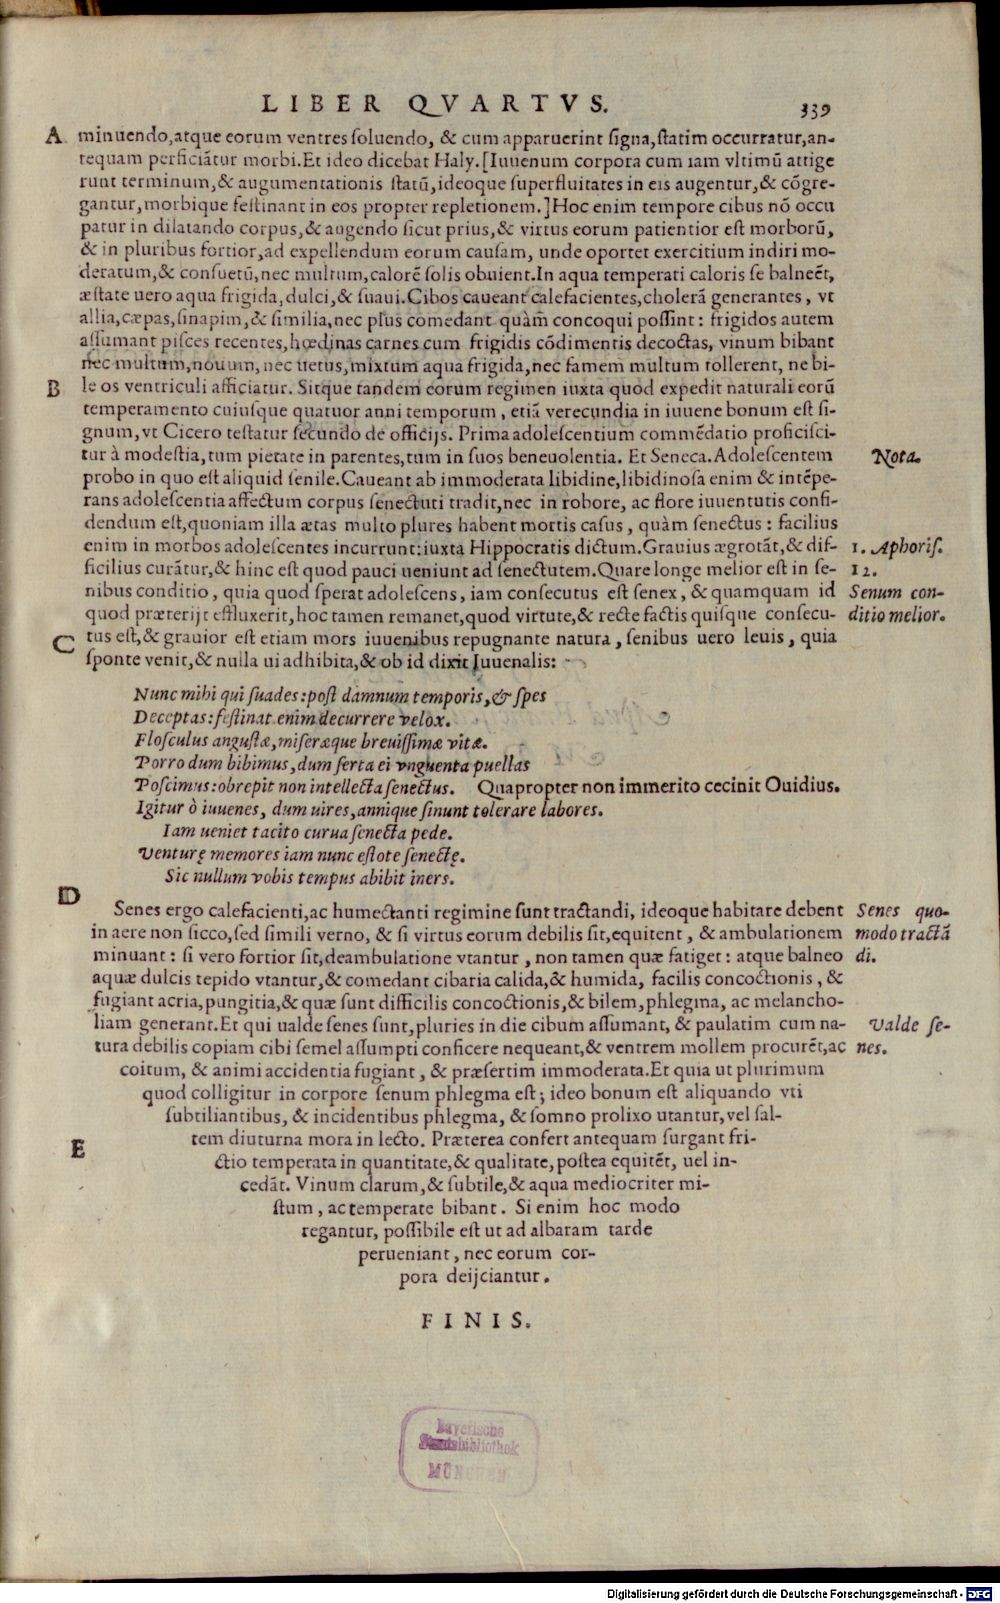 LIBER QVARTVS. 339
A minuendo, atque eorum ventres soluendo, & cum apparuerint signa, statim occurratur, an-
tequam perficiãtur morbi. Et ideo dicebat Haly. [Iuuenum corpora cum iam vltimũ attige
runt terminum, & augumentationis statũ, ideoque superfluitates in eis augentur, & cõgre-
gantur, morbique festinant in eos propter repletionem.] Hoc enim tempore cibus nõ occu
patur in dilatando corpus, & augendo sicut prius, & virtus eorum patientior est morborũ,
& in pluribus fortior, ad expellendum eorum causam, unde oportet exercitium indiri mo-
deratum, & consuetũ, nec multum, calorẽ solis obuient. In aqua temperati caloris se balneẽt,
æstate uero aqua frigida, dulci, & suaui. Cibos caueant calefacientes, cholerã generantes, vt
allia, cæpas, sinapim, & similia, nec plus comedant quàm concoqui possint: frigidos autem
assumant pisces recentes, hœdinas carnes cum frigidis cõdimentis decoctas, vinum bibant
nec multum, nouum, nec uetus, mixtum aqua frigida, nec famem multum tollerent, ne bi-
B le os ventriculi afficiatur. Sitque tandem eorum regimen iuxta quod expedit naturali eorũ
temperamento cuiusque quatuor anni temporum, etiã verecundia in iuuene bonum est si-
gnum, vt Cicero testatur secundo de officijs. Prima adolescentium commẽdatio proficisci-
tur à modestia, tum pietate in parentes, tum in suos beneuolentia. Et Seneca. Adolescentem Nota.
probo in quo est aliquid senile. Caueant ab immoderata libidine, libidinosa enim & intẽpe-
rans adolescentia affectum corpus senectuti tradit, nec in robore, ac flore iuuentutis confi-
dendum est, quoniam illa ætas multo plures habent mortis casus, quàm senectus: facilius
enim in morbos adolescentes incurrunt: iuxta Hippocratis dictum. Grauius ægrotãt, & dif- 1. Aphoris.
ficilius curãtur, & hinc est quod pauci ueniunt ad senectutem. Quare longe melior est in se- 12.
nibus conditio, quia quod sperat adolescens, iam consecutus est senex, & quamquam id Senum con-
quod præterijt effluxerit, hoc tamen remanet, quod virtute, & recte factis quisque consecu- ditio melior.
C tus est, & grauior est etiam mors iuuenibus repugnante natura, senibus uero leuis, quia
sponte venit, & nulla ui adhibita, & ob id dixit Iuuenalis:
Nunc mihi qui suades: post damnum temporis, & spes
Deceptas: festinat enim decurrere velox.
Flosculus angustæ, miseræque breuissimæ vitæ.
Porro dum bibimus, dum serta ei vnguenta puellas
Poscimus: obrepit non intellecta senectus. Quapropter non immerito cecinit Ouidius.
Igitur ò iuuenes, dum uires, annique sinunt tolerare labores.
Iam ueniet tacito curua senecta pede.
Venturę memores iam nunc estote senectę.
Sic nullum vobis tempus abibit iners.
D
Senes ergo calefacienti, ac humectanti regimine sunt tractandi, ideoque habitare debent Senes quo-
in aere non sicco, sed simili verno, & si virtus eorum debilis sit, equitent, & ambulationem modo tractã
minuant: si vero fortior sit, deambulatione vtantur, non tamen quæ fatiget: atque balneo di.
aquæ dulcis tepido vtantur, & comedant cibaria calida, & humida, facilis concoctionis, &
fugiant acria, pungitia, & quæ sunt difficilis concoctionis, & bilem, phlegma, ac melancho-
liam generant. Et qui ualde senes sunt, pluries in die cibum assumant, & paulatim cum na- Valde se-
tura debilis copiam cibi semel assumpti conficere nequeant, & ventrem mollem procurẽt, ac nes.
coitum, & animi accidentia fugiant, & præsertim immoderata. Et quia ut plurimum
quod colligitur in corpore senum phlegma est; ideo bonum est aliquando vti
subtiliantibus, & incidentibus phlegma, & somno prolixo utantur, vel sal-
E tem diuturna mora in lecto. Præterea confert antequam surgant fri-
ctio temperata in quantitate, & qualitate, postea equitẽt, uel in-
cedãt. Vinum clarum, & subtile, & aqua mediocriter mi-
stum, ac temperate bibant. Si enim hoc modo
regantur, possibile est ut ad albaram tarde
perueniant, nec eorum cor-
pora deijciantur.
FINIS.
Bayerische
Staatsbibliothek
MÜNCHEN
Digitalisierung gefördert durch die Deutsche Forschungsgemeinschaft - DFG